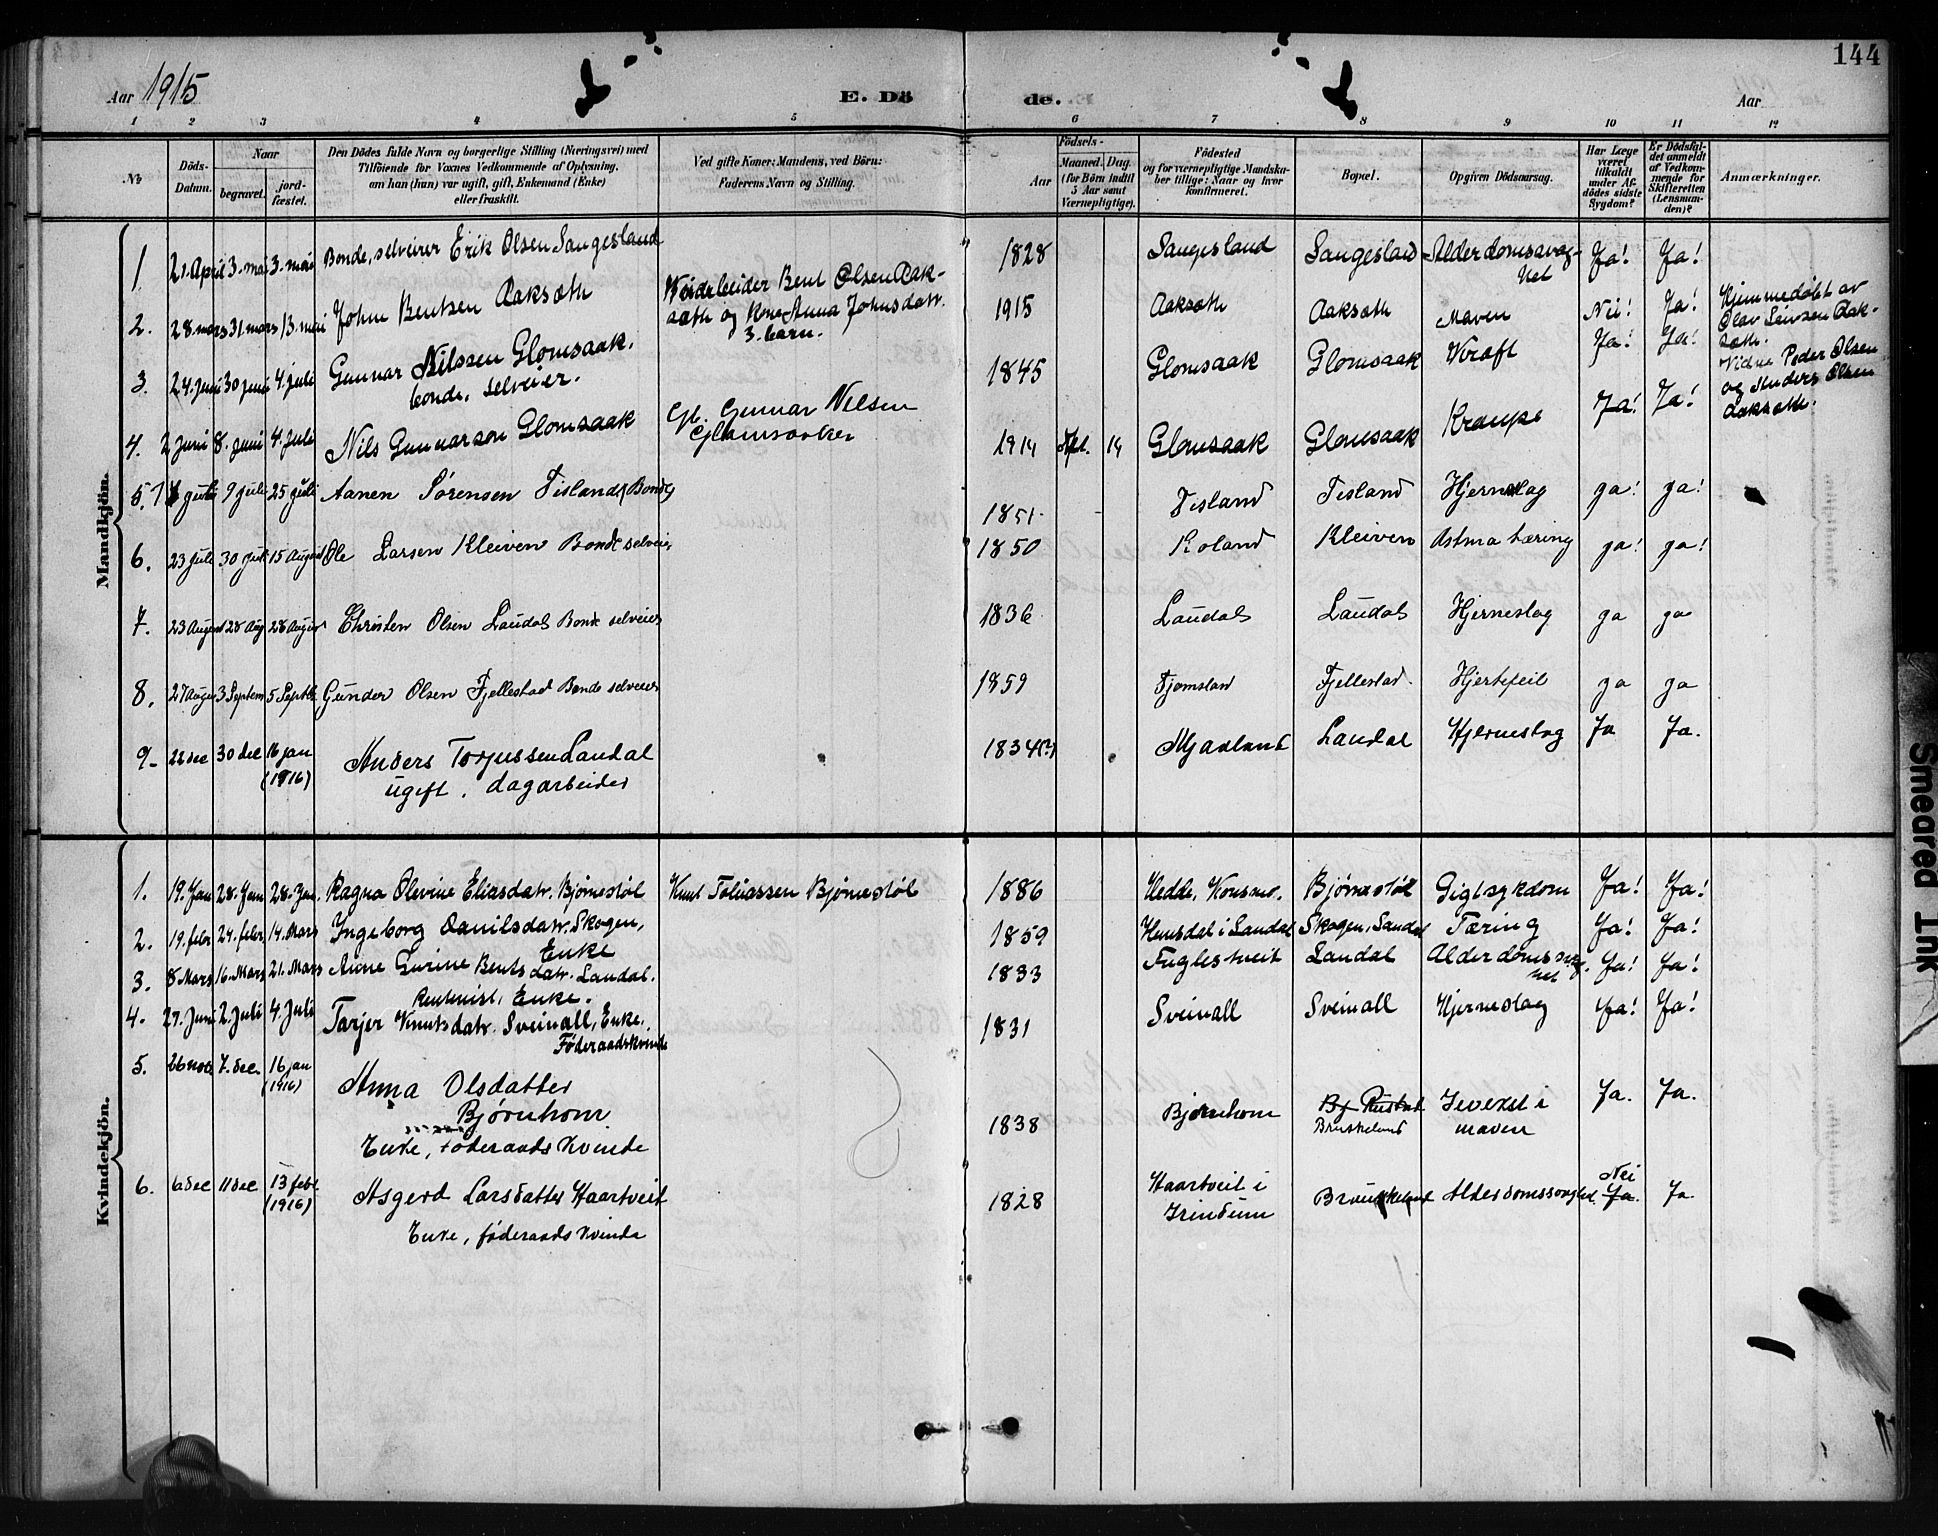 144
Aar 1915
E. Dö
de.
Aar
1 2 3 4 5 6 7 8 9 10 11 12
No
Döds-Datum.
Naar
begravet.
jord-fæstet.
Den Dödes fulde Navn og borgerlige Stilling (Næringsvei) med
Tilföiende for Voxnes Vedkommende af Oplysning,
om han (hun) var ugift, gift, Enkemand (Enke)
eller fraskilt.
Ved gifte Koner: Mandens, ved Börn:
Faderens Navn og Stilling.
Födsels-
Aar
Maaned. Dag.
(for Börn indtil
5 Aar samt
Værnepligtige).
Födested
og for værnepligtige Mandska-
ber tillige: Naar og hvor
konfirmeret.
Bopæl.
Opgiven Dödsaarsag.
Har Læge
været
tilkaldt
under Af-
dödes sidste
Sygdom?
Er Dödsfal-
det anmeldt
af Vedkom-
mende for
Skifteretten
(Lensman-
den)?
Anmærkninger.
Mandkjön.
1 21. April 3. mai 3. mai Bonde, selveirer Erik Olsen Saugesland 1828 Saugesland Saugesland Alderdomssvag-
het Ja! Ja!
2. 28. mars 31 mars 13. mai John Bentsen Aaksæth Bent Olsen Aak-
sæth og Kone Anna Johnsdatr.
3. barn.
1915 Aaksæth Aaksæth Maven Nei! Ja! Hjemmedøbt av
Olav Aak-
sæth.
Vidne Peder Olsen
og Anders Olsen
Aaksæth.
3. 24. juni 30 juni 4. juli Gunnar Nilssen Glomsaak.
bonde, selveier.
1845 Glomsaak Glomsaak Kræft Ja! Ja!
4. 2 juni 8. juni 4. juli Nils Gunnarson Glomsaak Gunnar Nilsen
Glomsaaker
1914 Sept. 14 Glomsaak Glomsaak Krampe Ja! Ja!
5. juli 9 juli 25 juli Aanen Sørensen Tisland (Bonde) 1851 Tisland Tisland Hjerneslag ja! ja!
6. 23 juli 30 juli 15 August Ole Larsen Kleiven Bonde selveier 1850 Roland Kleiven Astma tæring ja! ja!
7. 23 August 28 Aug 28 August Christen Olsen Laudal Bonde selveier 1836 Laudal Laudal Hjerneslag ja ja
8. 27 August 3 Septem 5 Septbr Gunder Olsen Fjellestad Bonde selveier 1859 Tjomsland Fjellestad. Hjertefeil ja ja
9- 22 dec 30 dec 16 jan
(1916)
Anders Torjussen Laudal
ugift. dagarbeider
1834(?) Mjaaland Laudal Hjerneslag Ja Ja.
Kvindekjön.
1. 19. Jan 28. Jan 28. Jan. Ragna Olevine Eliasdatr. Bjørnestøl Knut Tobiassen Bjørnestøl 1886 Hedde, Konsmo. Bjørnestøl Gigtsykdom Ja! Ja!
2. 19. febr 24. febr 14. Mars Ingeborg Danilsdatr. Skogen,
Enke
1859 Homsdal i Laudal Skogen, Laudal Tæring Ja! Ja!
3. 8 Mars 16. Mars 21. Mars Anne Gurine Bentsdatr. Laudal.
Rentenist, Enke.
1833 Fuglestveit Laudal Alderdomssvag-
het Ja! Ja!
4. 27. Juni 2. Juli 4. Juli Tarjer Knutsdatr. Sveinall, Enke,
Føderaadskvinde
1831 Sveinall Sveinall Hjerneslag Ja! Ja!
5. 26 nov. 7. dec. 16 jan
(1916)
Anna Olsdatter
Bjørnhom
Enke, føderaadskvinde
1838 Bjørnhom Bruskeland Svekst i
maven Ja. Ja.
6. 6 dec 11 dec 13 febr
(1916)
Asgerd Larsdatter Haartveit
Enke, føderaadskvinde
1828 Haartveit i
Grindum Alderdomssvaghet Nei
Ja. Ja
Smeared Ink